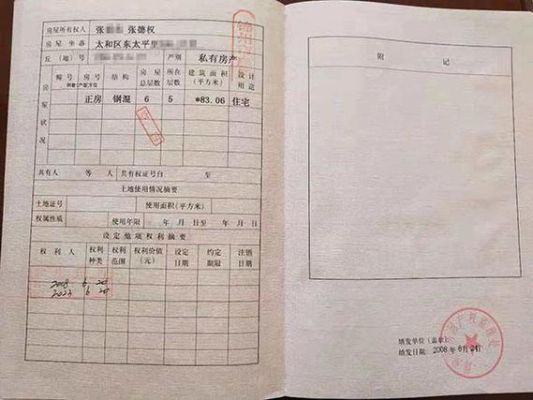 房屋所有权人 张 张德权
房屋坐落 太和区东太平里
丘(地)号 产别 私有房产
房屋状况 幢号 房号 结构 房屋总层数 所在层数 建筑面积(平方米) 设计用途
正房 钢混 6 5 *83.06 住宅
共有人 等 人 共有权证号自 至
土地使用情况摘要
土地证号 使用面积(平方米)
权属性质 使用年限 年 月 日至 年 月 日
设定他项权利摘要
权利人 权利种类 权利范围 权利价值(元) 设定日期 约定期限 注销日期
2008 6 20
附 记
填发单位(盖章):
填发日期: 2008年6月